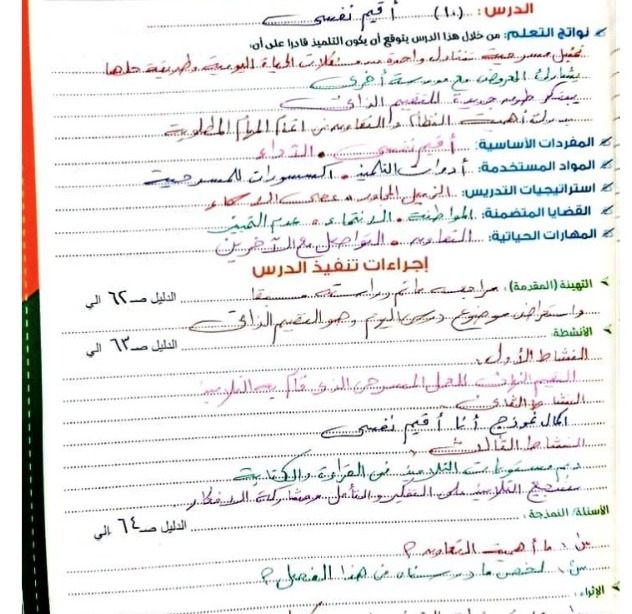 الدرس: (١٠) أقيم نفسى
نواتج التعلم: من خلال هذا الدرس يتوقع أن يكون التلميذ قادرا على أن:
تمثيل مسرحية تتناول واحدة من مشكلات الحياة اليومية وطريقة حلها
يشارك العروض مع مدرسة أخرى
يبتكر طرق جديدة للتقييم الذاتى
يدرك أهمية النظام والتعاون فى اتمام المهام المطلوبة
المفردات الأساسية: أقيم نفسى • الأداء
المواد المستخدمة: أدوات التلميذ • اكسسورات للمسرحية
استراتيجيات التدريس: الزميل المجاور • عصى الاسكاء
القضايا المتضمنة: المواطنة • الانتماء • عدم التمييز
المهارات الحياتية: التعاون • التواصل مع الآخرين
إجراءات تنفيذ الدرس
التهيئة (المقدمة): مراجعة ما تم دراسته مسبقا الدليل صـ ٦٢ الي
واستعراض موضوع درس اليوم وهو التقييم الذاتى
الأنشطة: الدليل صـ ٦٣ الي
النشاط الأول:
التقييم الذاتى للعمل المسرحى الذى قام به التلاميذ
النشاط الثانى
اكمال نموذج أنا أقيم نفسى
النشاط الثالث
دعم مستويات التلاميذ فى القراءة والكتابة
تشجيع التلاميذ على التفكير والتأمل ومشاركة الافكار
الأسئلة/ النمذجة: الدليل صـ ٦٤ الي
س: ما أهمية التعاون؟
س: لخص ما درسناه فى هذا الفصل؟
الإثراء: